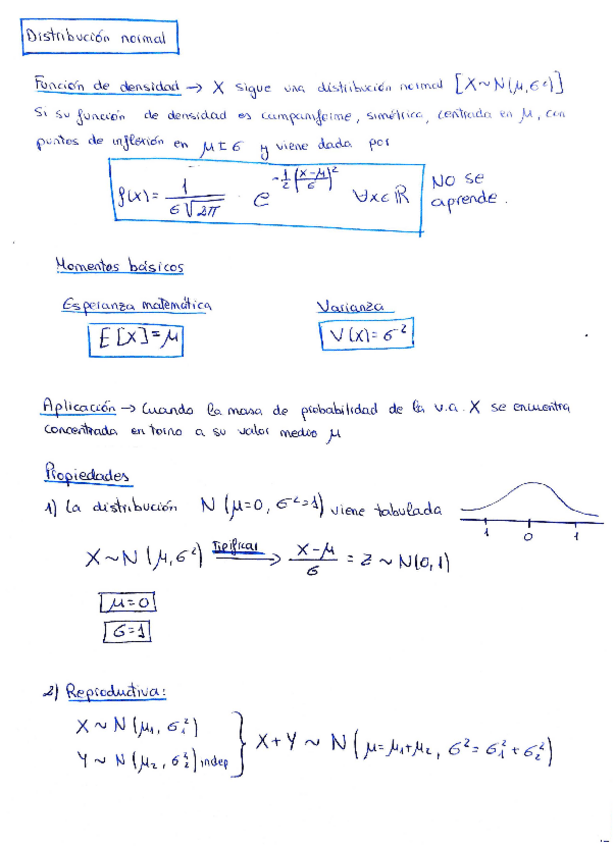 Distribución normal
Función de densidad → X sigue una distribución normal [X~N(μ,σ²)]
Si su función de densidad es campaniforme, simétrica, centrada en μ, con
puntos de inflexión en μ±σ y viene dada por
f(x) = 1/(σ√2π) · e^(-1/2((x-μ)/σ)²) ∀x∈ℝ
NO se
aprende.
Momentos básicos
Esperanza matemática Varianza
E[X]=μ V(X)=σ²
Aplicación → Cuando la masa de probabilidad de la v.a. X se encuentra
concentrada en torno a su valor medio μ
Propiedades
1) La distribución N(μ=0, σ²=1) viene tabulada
1 0 1
X~N(μ,σ²) Tipificar ⟶ (X-μ)/σ = Z ~ N(0,1)
μ=0
σ=1
2) Reproductiva:
X ~ N(μ₁, σ₁²)
Y ~ N(μ₂, σ₂²) indep } X+Y ~ N(μ=μ₁+μ₂, σ²=σ₁²+σ₂²)